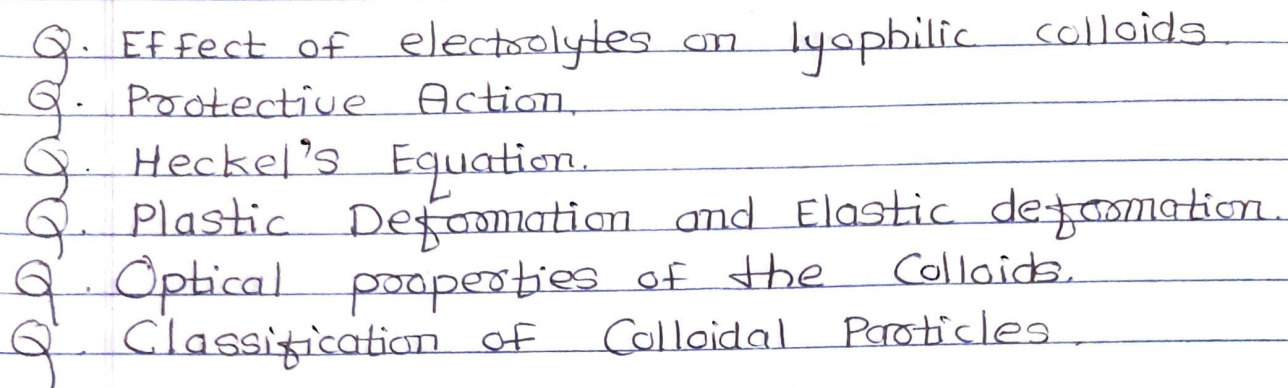 Q. Effect of electrolytes on lyophilic colloids.
Q. Protective Action.
Q. Heckel's Equation.
Q. Plastic Deformation and Elastic deformation.
Q. Optical properties of the Colloids.
Q. Classification of Colloidal Particles.